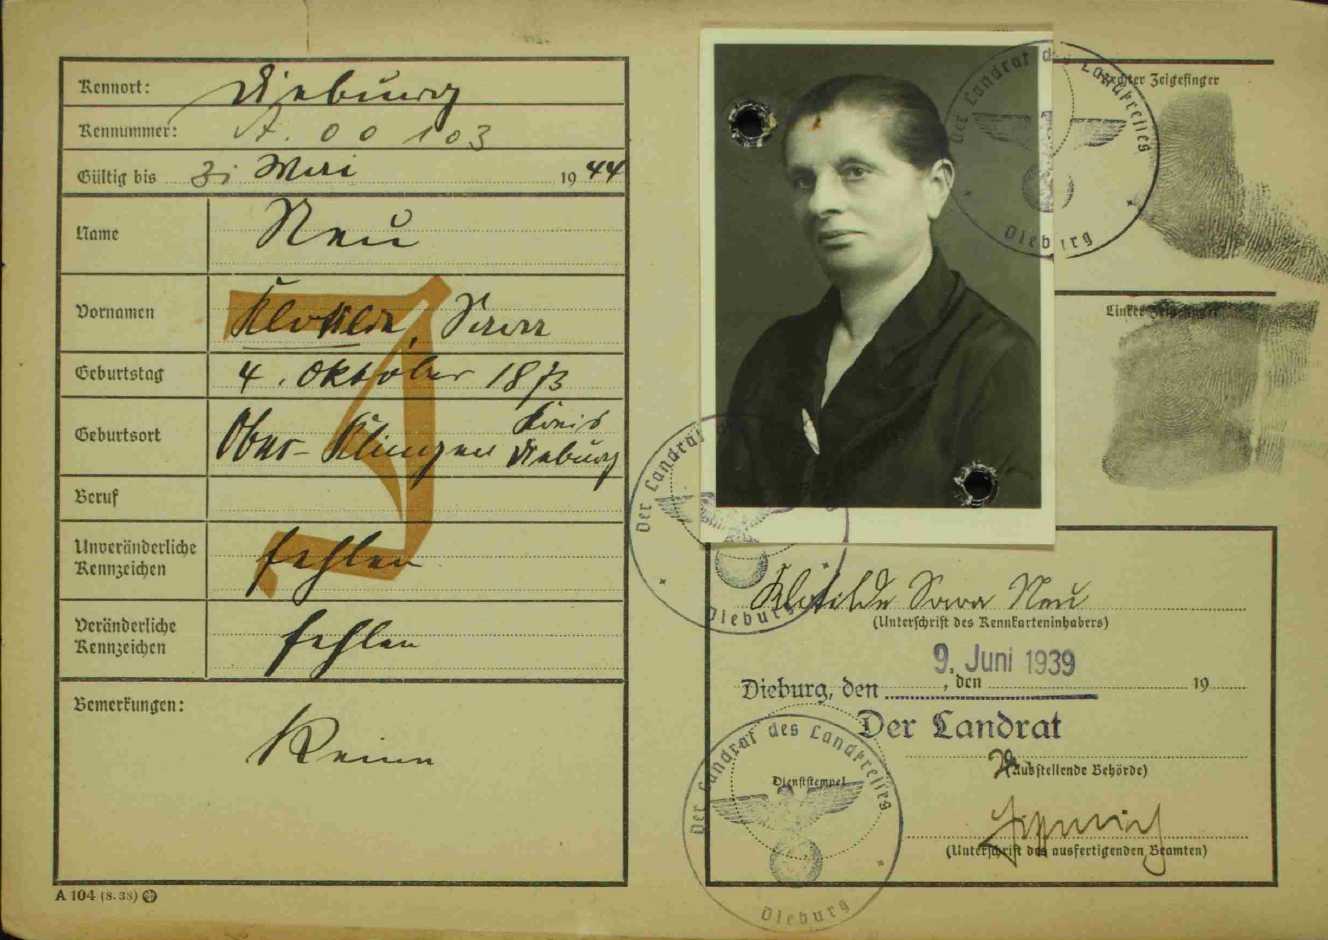 Kennort: Dieburg
Kennummer: A. 00103
Gültig bis 31 Mai 1944
Name Neu
Vornamen Klotilde, Sara
J
Geburtstag 4. Oktober 1873
Geburtsort Ober-Klingen Kreis Dieburg
Beruf
Unveränderliche Kennzeichen fehlen
Veränderliche Kennzeichen fehlen
Bemerkungen:
Keine
A 104 (8. 38)
Der Landrat des Landkreises
Dieburg
Rechter Zeigefinger
Linker Zeigefinger
Der Landrat
Dieburg
Klotilde Sara Neu
(Unterschrift des Kennkarteninhabers)
9. Juni 1939
Dieburg, den , den 19
Der Landrat
(Ausstellende Behörde)
Der Landrat des Landkreises
Dienststempel
Dieburg
(Unterschrift des ausfertigenden Beamten)